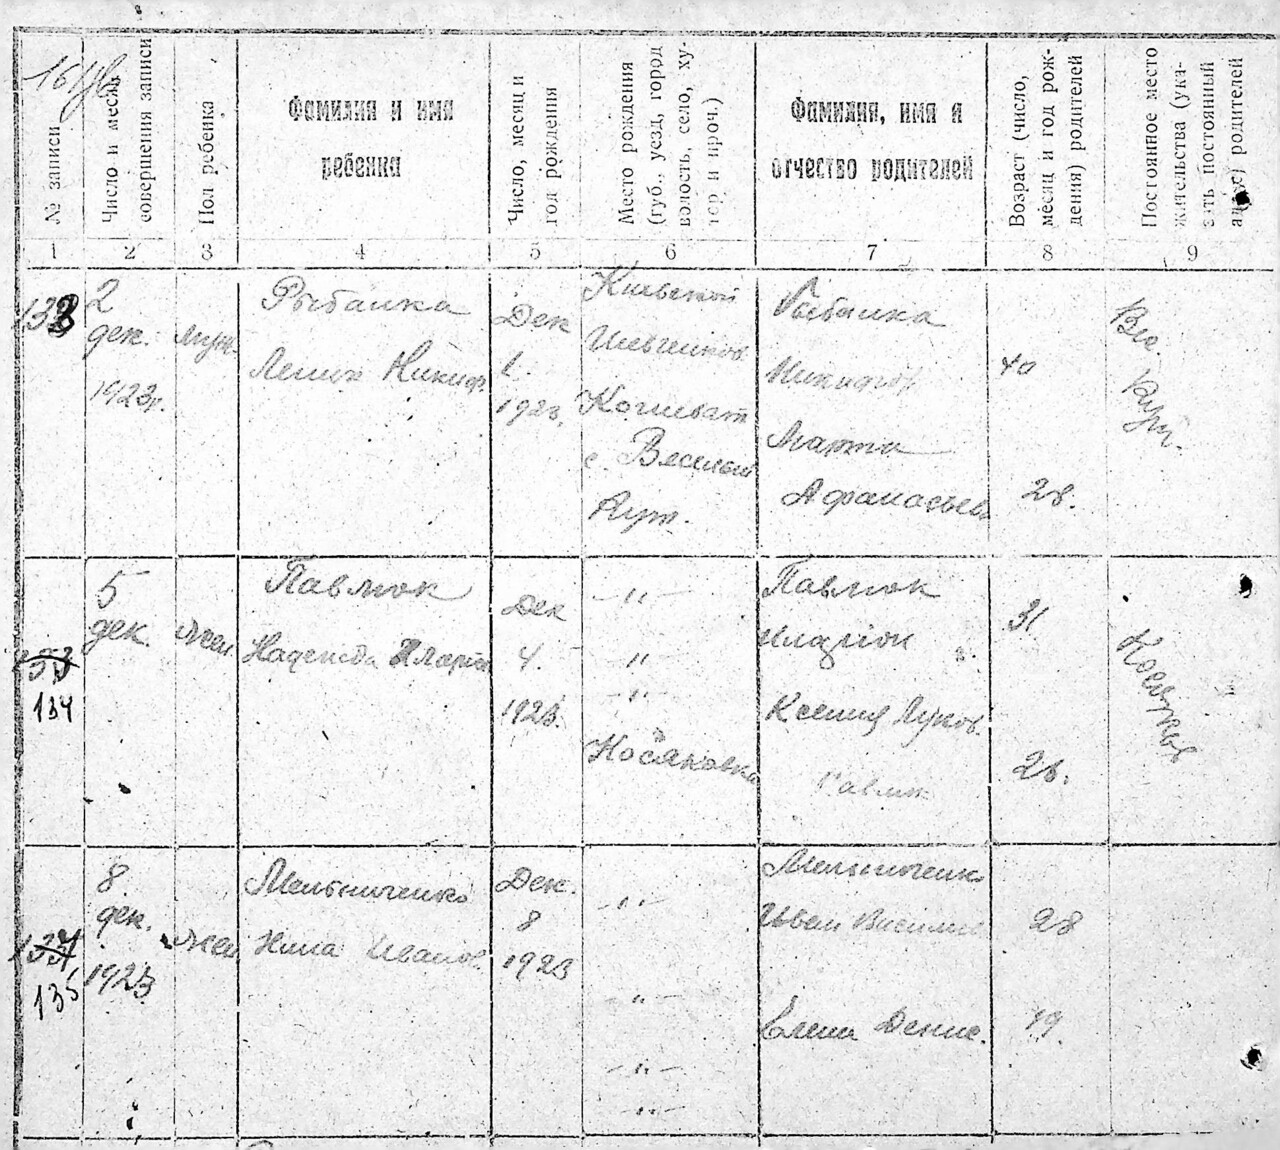 № записи
Число и месяц
совершения записи
Пол ребенка
Фамилия и имя
ребенка
Число, месяц и
год рождения
Место рождения
(губ., уезд, город
волость, село, ху-
тор и проч.)
Фамилия, имя и
отчество родителей
Возраст (число,
месяц и год рож-
дения) родителей
Постоянное место
жительства (ука-
зать постоянный
адрес) родителей
1 2 3 4 5 6 7 8 9
133
2
дек.
1923г.
муж.
Рыбалка
Никиф.
Дек
1.
1923,
Киевской
Шевченков
Кошеват
с. Веселый
Кут.
Рыбалка
Никифор
Марта
Афанасьев
40
28.
Вес.
Кут.
133
134
5
дек.
жен
Павлюк
Надежда Иларион
Дек
4.
1923.
— " —
"
— " —
Косяковка
Павлюк
Иларіон
Ксения Луков.
Павлюк
31
26.
134
135
8.
дек.
1923
жен
Мельниченко
Нина Иванов.
Дек.
8
1923
— " —
— " —
— " —
— " —
Мельниченко
Иван
Елена Денис.
28
19.